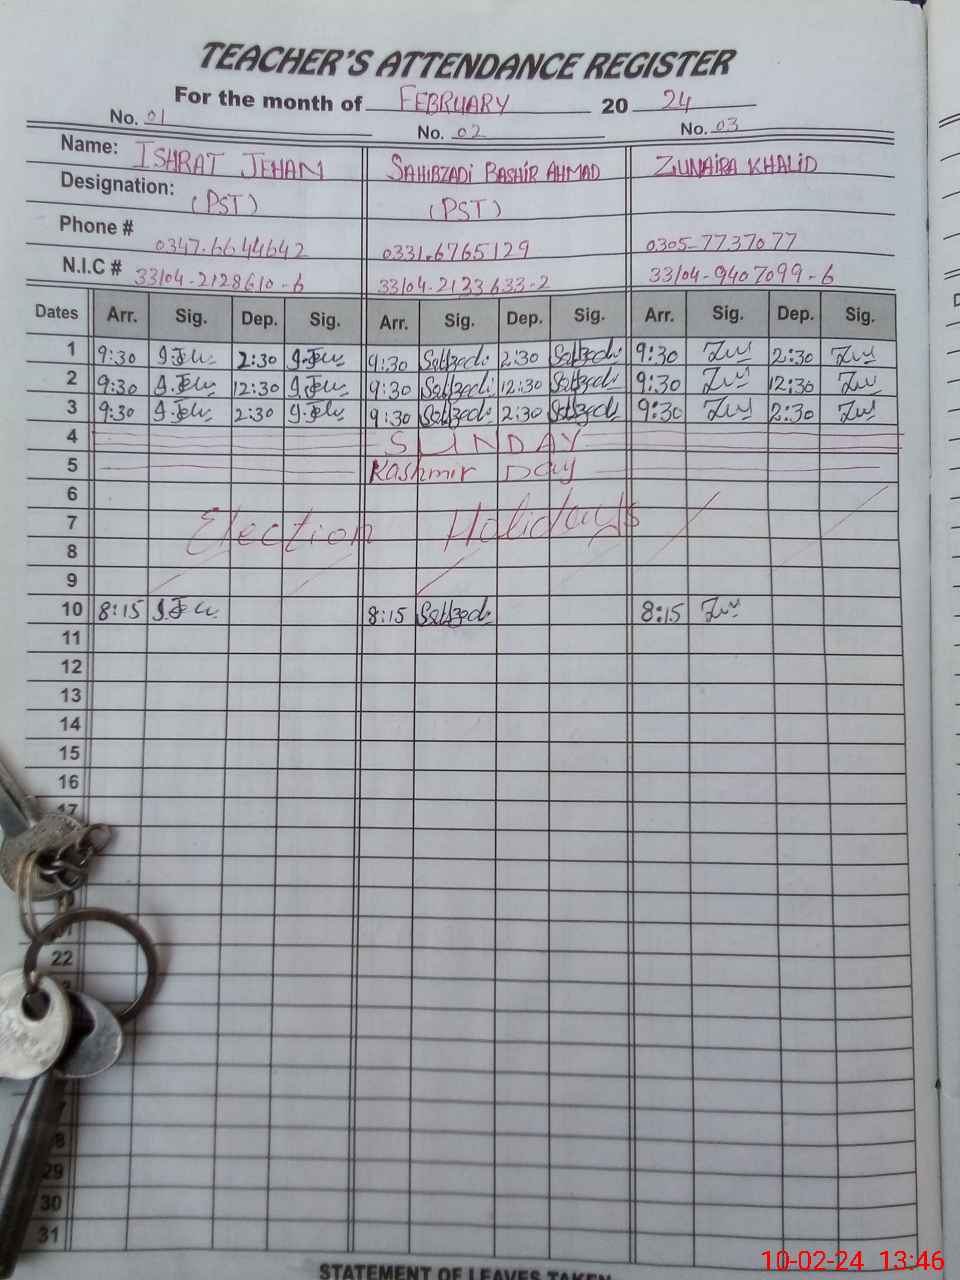 TEACHER'S ATTENDANCE REGISTER
For the month of FEBRUARY 20 24
No. 01 No. 02 No. 03
Name: ISHRAT JEHAN SAHIBZADI BASHIR AHMAD ZUNAIRA KHALID
Designation: (PST) (PST)
Phone # 0347-6644642 0331-6765129 0305-7737077
N.I.C # 33104-2128610-6 33104-2133633-2 33104-9407099-6
Dates Arr. Sig. Dep. Sig. Arr. Sig. Dep. Sig. Arr. Sig. Dep. Sig.
1 9:30 2:30 9:30 2:30 9:30 2:30
2 9:30 12:30 9:30 12:30 9:30 12:30
3 9:30 2:30 9:30 2:30 9:30 2:30
4 SUNDAY
5 Kashmir Day
6
7 Election Holidays
8
9
10 8:15 8:15 8:15
11
12
13
14
15
16
17
22
29
30
31
STATEMENT OF LEAVES TAKEN
10-02-24 13:46